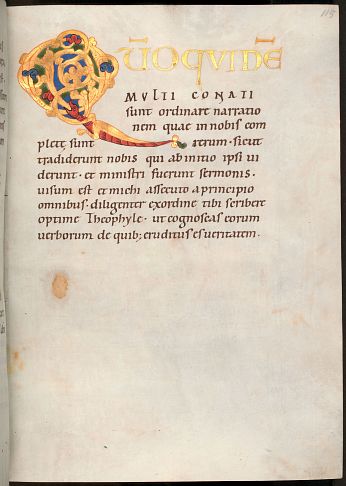 115
QUO QVIDĒ
MVLTI CONATI
sunt ordinare narratio
nem quae in nobis com
pletę sunt rerum · sicut
tradiderunt nobis qui ab initio ipsi vi
derunt · et ministri fuerunt sermonis ·
uisum est et michi assecuto a principio
omnibus · diligenter exordine tibi scribere
optime Theophyle · ut cognoscas eorum
uerborum de quib; eruditus es ueritatem ·